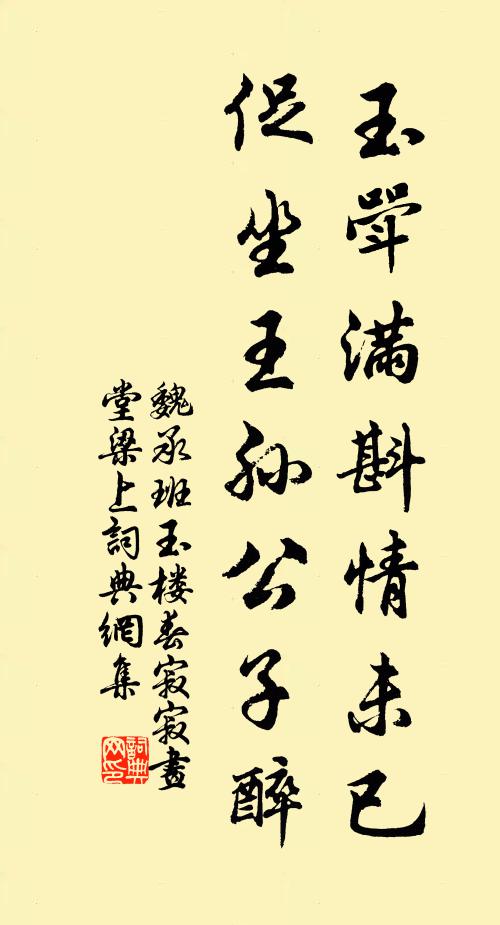 玉斝满斟情未已
促坐王孙公子醉
魏承班玉楼春寂寂畫
堂梁上詞典網集
詞典
网印